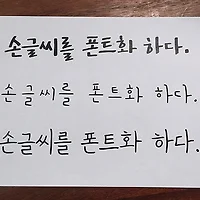 손글씨를 폰트화 하다.
손글씨를 폰트화 하다.
손글씨를 폰트화 하다.